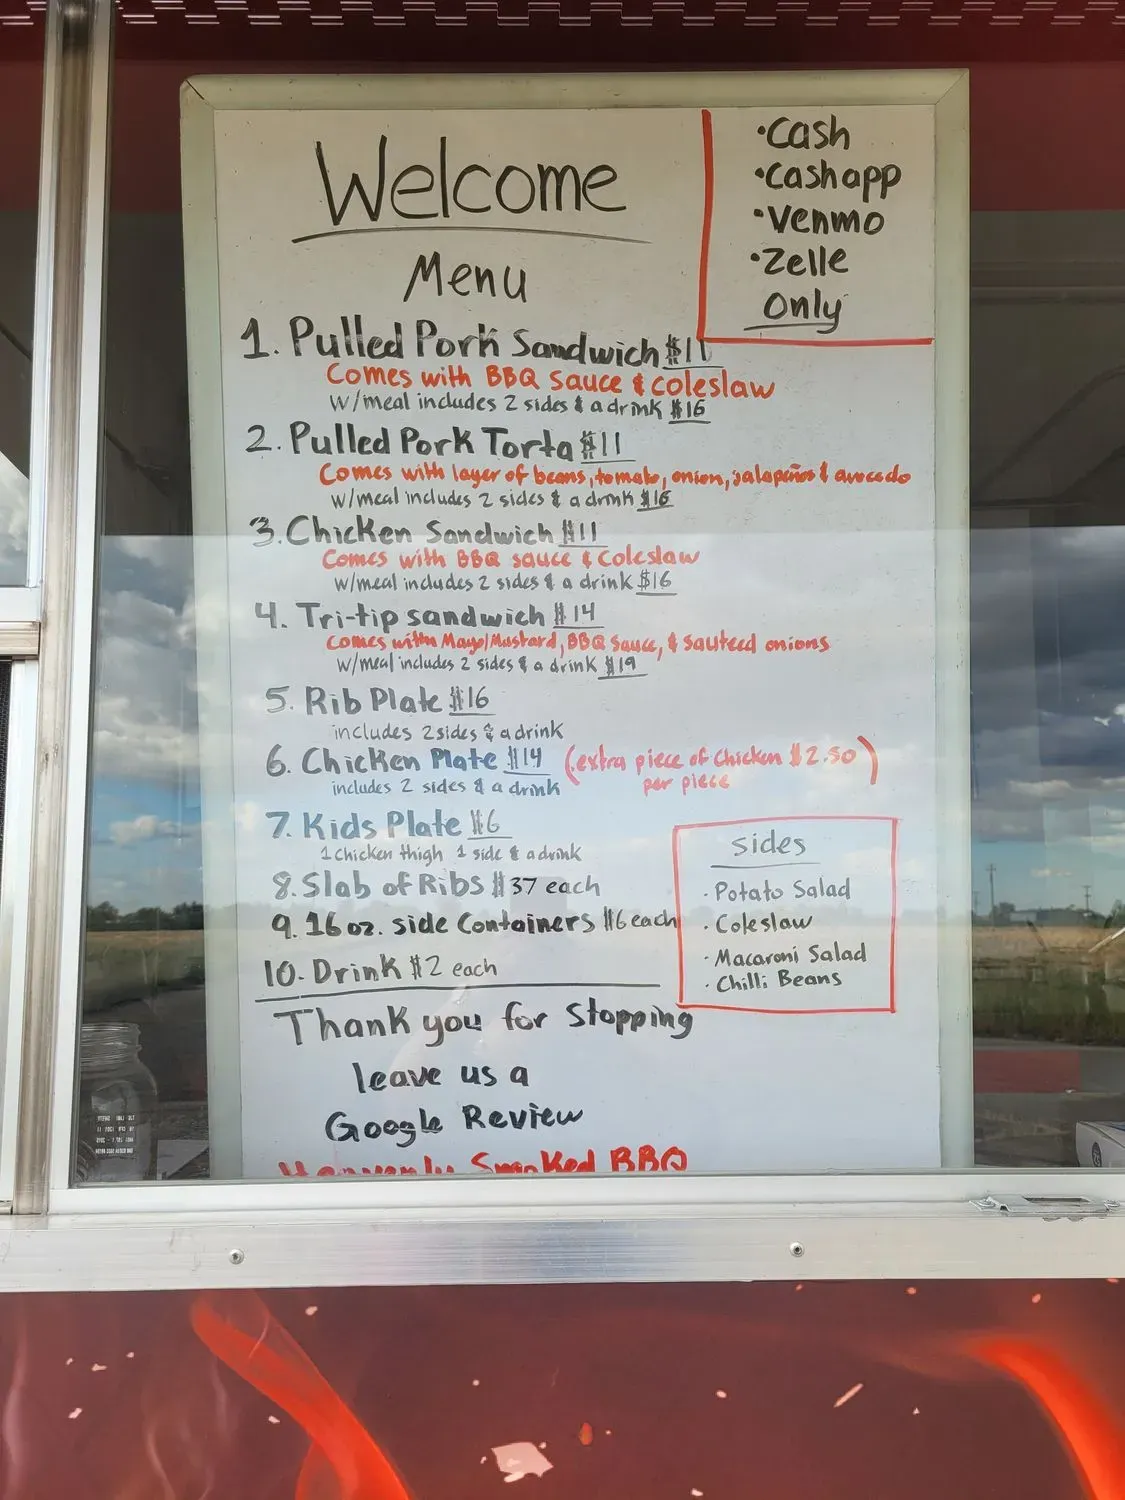 Welcome
Menu
• Cash
• Cashapp
• Venmo
• Zelle
Only
1. Pulled Pork Sandwich $11
Comes with BBQ sauce & coleslaw
w/meal includes 2 sides & a drink $16
2. Pulled Pork Torta $11
Comes with layer of beans, tomato, onion, jalapeños & avocado
w/meal includes 2 sides & a drink $16
3. Chicken Sandwich $11
Comes with BBQ sauce & Coleslaw
w/meal includes 2 sides & a drink $16
4. Tri-tip sandwich $14
Comes with Mayo/Mustard, BBQ Sauce, & sauteed onions
w/meal includes 2 sides & a drink $19
5. Rib Plate $16
includes 2 sides & a drink
6. Chicken Plate $14 (extra piece of chicken $2.50
per piece)
includes 2 sides & a drink
7. Kids Plate $6
1 Chicken thigh 1 side & a drink
8. Slab of Ribs $37 each
9. 16oz. side Containers $6 each
10. Drink $2 each
Sides
· Potato Salad
· Coleslaw
· Macaroni Salad
· Chilli Beans
Thank you for Stopping
leave us a
Google Review
Heavenly Smoked BBQ